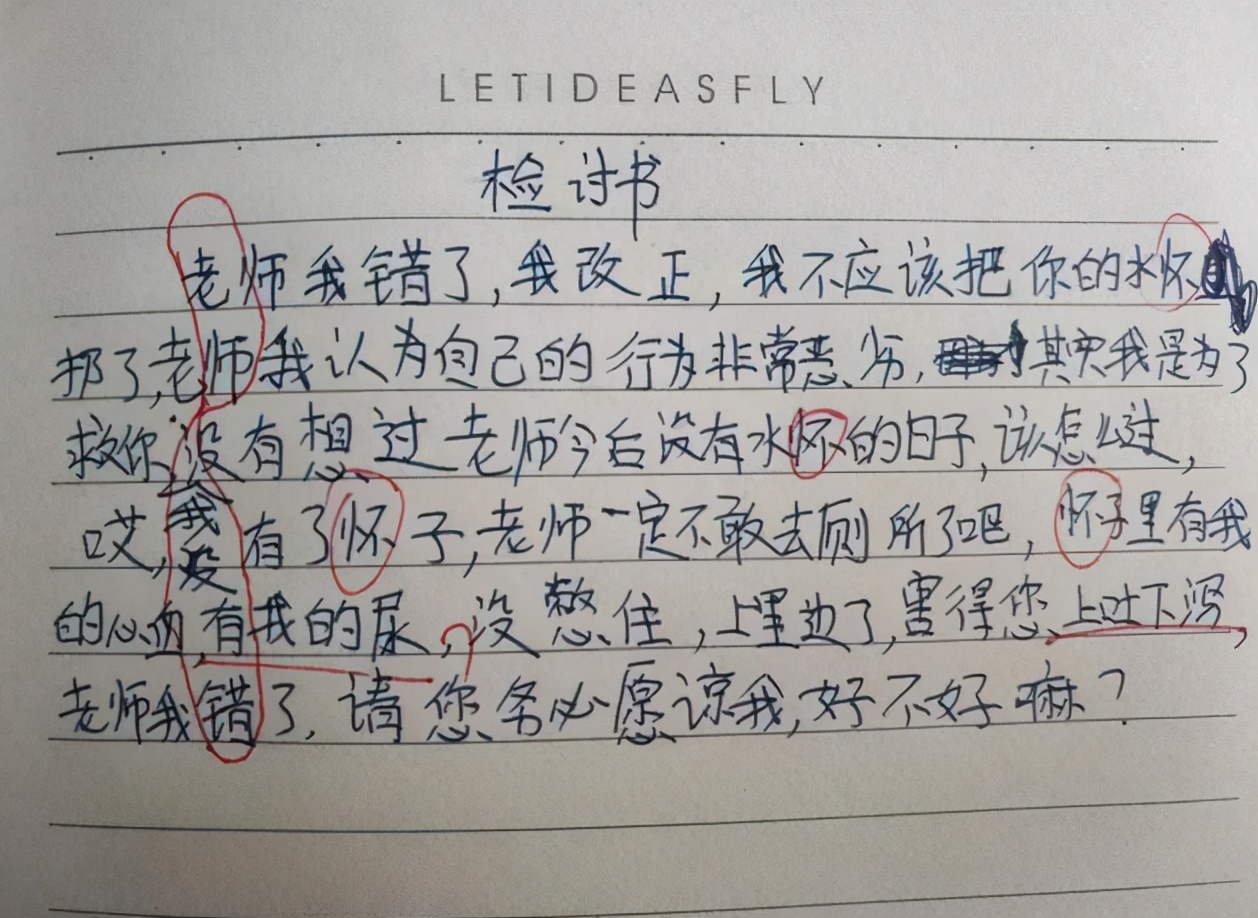 LETIDEASFLY
检讨书
老师我错了,我改正,我不应该把你的水怀
扔了,老师我认为自己的行为非常恶劣,其实我是为了
救你,没有想过老师今后没有水怀的日子,该怎么过,
哎,我没有了怀子,老师一定不敢去厕所了吧,怀子里有我
的心血,有我的尿,没憋住,上里边了,害得您上吐下泻,
老师我错了,请您务必愿谅我,好不好嘛?